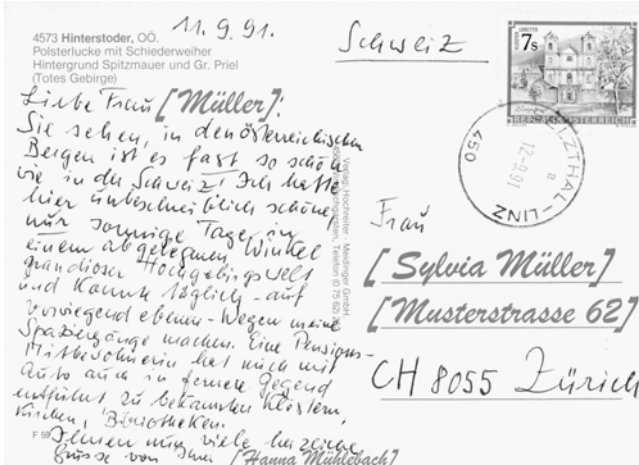 4573 Hinterstoder, OÖ.
Polsterlucke mit Schiederweiher
Hintergrund Spitzmauer und Gr. Priel
(Totes Gebirge)
11. 9. 91.
Liebe Frau [Müller]:
Sie sehen, in den österreichischen
Bergen ist es fast so schön
wie in der Schweiz! Ich hatte
hier unbeschreiblich schöne,
nur sonnige Tage in
einem abgelegenen Winkel
grandioser Hochgebirgswelt
und konnte täglich - auf
vorwiegend ebenen - Wegen meine
Spaziergänge machen. Eine Pensions-
Mitbewohnerin hat mich mit
Auto auch in fernere Gegend
entführt zu bekannten Klöstern,
Kirchen, Bibliotheken.
Ihnen nun viele herzliche
Grüsse von Ihrer [Hanna Mühlebach]
F 59
Verlag: Hochreiter - Meidinger GmbH
Telefon (0 75 62)
Schweiz
7s
REPUBLIK ÖSTERREICH
-LINZ
12-9.91
a
450
Frau
[Sylvia Müller]
[Musterstrasse 62]
CH 8055 Zürich